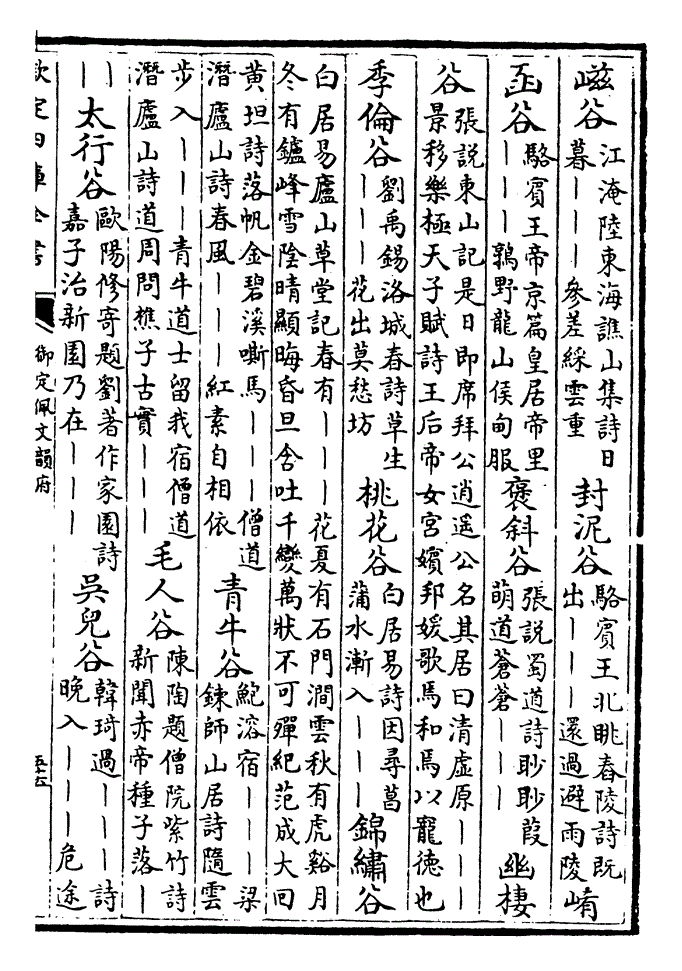 嵫谷江淹陸東海譙山集詩日暮｜｜參差綵雲重封泥谷駱賓王北眺舂陵詩既出｜｜｜還過避雨陵崤
函谷駱賓王帝京篇皇居帝里｜｜｜鶉野龍山侯甸服褒斜谷張説蜀道詩眇眇葭萌道蒼蒼｜｜｜幽棲
谷張説東山記是日即席拜公逍遥公名其居曰清虛原｜｜｜景移樂極天子賦詩王后帝女宮嬪邦媛歌焉和焉以寵德也
季倫谷劉禹錫洛城春詩草生｜｜｜花出莫愁坊桃花谷白居易詩因尋菖蒲水漸入｜｜｜錦繡谷
白居易廬山草堂記春有｜｜｜花夏有石門澗雲秋有虎谿月冬有鑪峰雪陰晴顯晦昏旦含吐千變萬狀不可殫紀范成大回
黄坦詩落帆金碧溪嘶馬｜｜｜僧道潛廬山詩春風｜｜｜紅素自相依青牛谷鮑溶宿｜｜｜梁鍊師山居詩隨雲
步入｜｜｜青牛道士留我宿僧道潛廬山詩道周問樵子古實｜｜｜毛人谷陳陶題僧院紫竹詩新聞赤帝種子落｜
｜｜太行谷歐陽修寄題劉著作家園詩嘉子治新園乃在｜｜｜吳兒谷韓琦過｜｜｜詩晚入｜｜｜危途
欽定四庫全書
御定佩文韻府